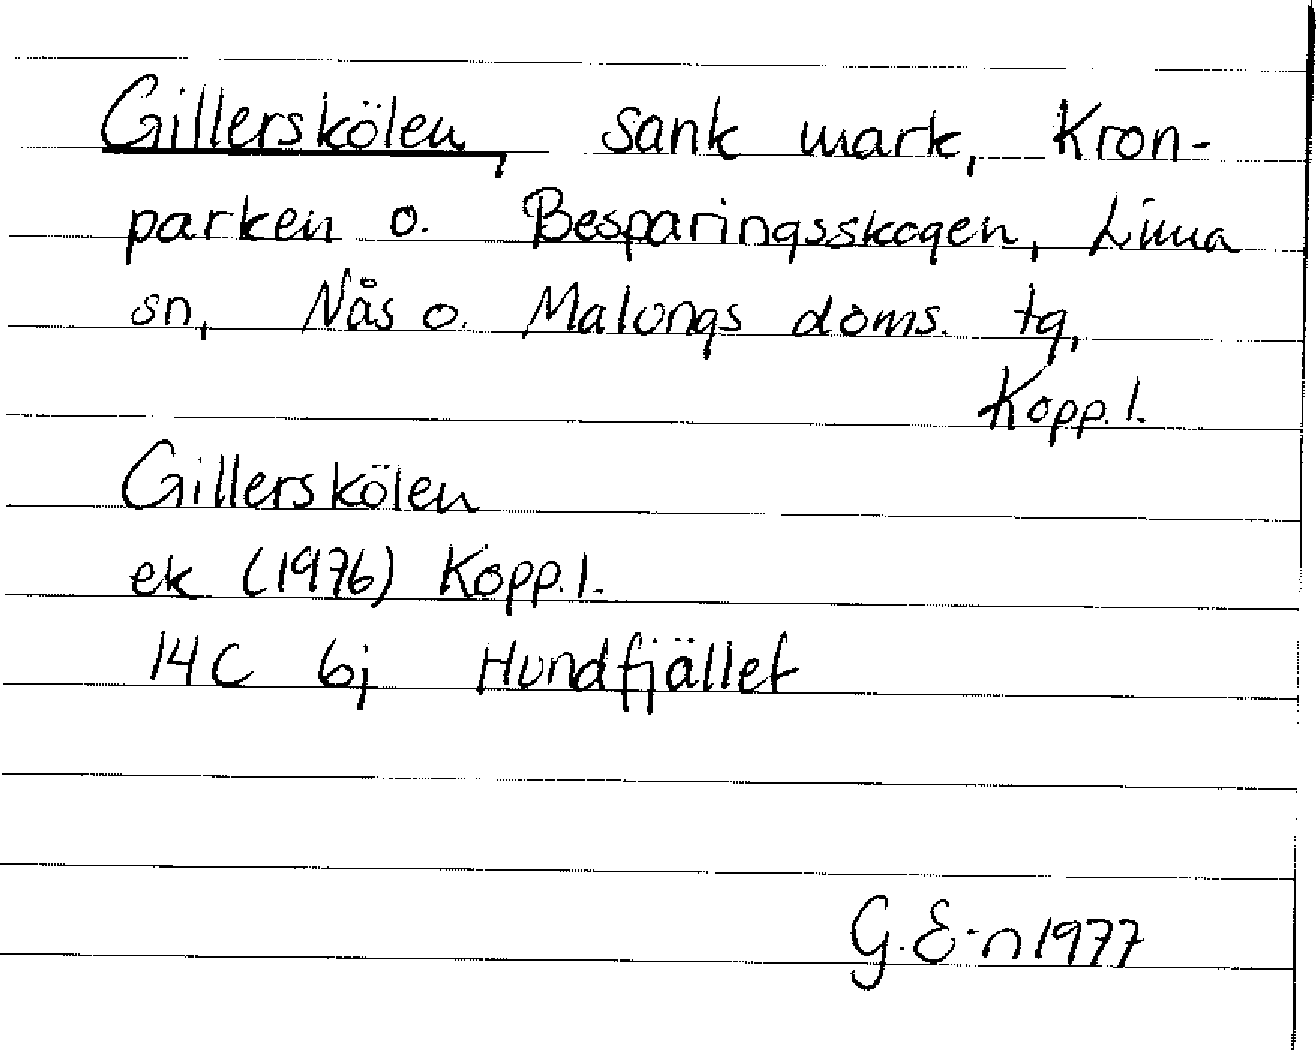 Gillerskölen, sank mark, Kron-
parken o. Besparingsskogen, Lima
sn, Nås o. Malungs doms. tg,
Kopp. l.
Gillerskölen
ek (1976) Kopp. l.
14C 6j Hundfjället
G. E-n 1977